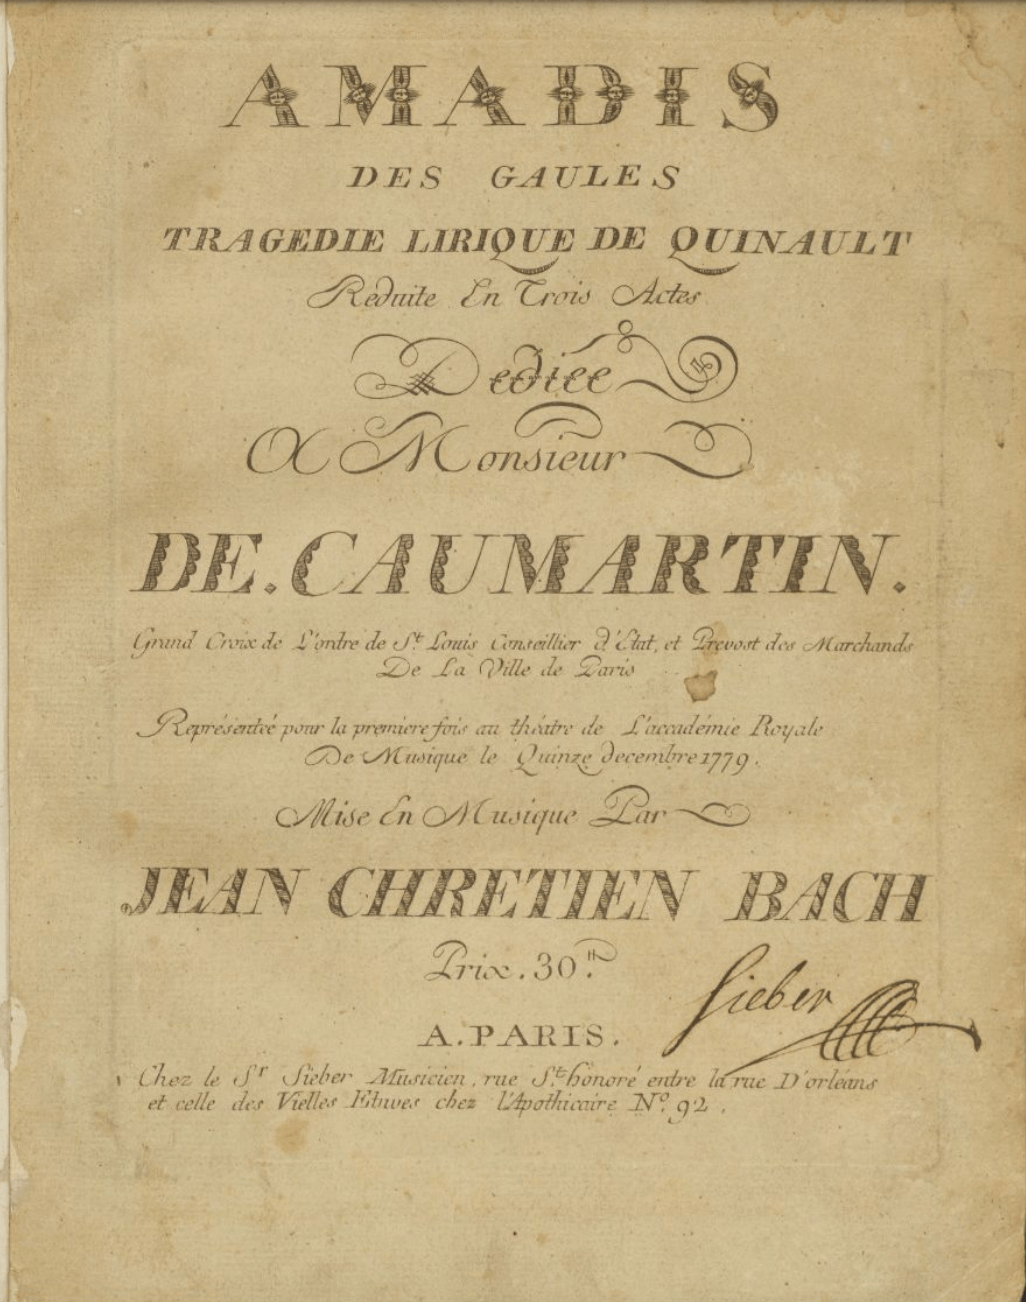 AMADIS
DES GAULES
TRAGEDIE LIRIQUE DE QUINAULT
Reduite En Trois Actes
Dediee
A Monsieur
DE. CAUMARTIN.
Grand Croix de L'ordre de St. Louis Conseillier d'Etat, et Prevost des Marchands
De La Ville de Paris
Représenteé pour la premiere fois au théatre de L'accadémie Royale
De Musique le Quinze decembre 1779.
Mise En Musique Par
JEAN CHRETIEN BACH
Prix. 30.tt
Sieber
A. PARIS.
Chez le Sr Sieber Musicien, rue St. honoré entre la rue D'orléans
et celle des Vielles Etuves chez l'Apothicaire No. 92.